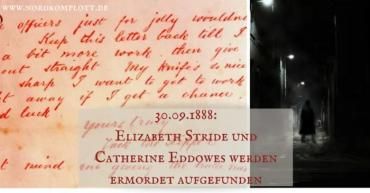 WWW.NORDKOMPLOTT.DE
officers just for jolly wouldn
Keep this letter back till I
a bit more work. then give
out straight. My knife's so nice
sharp I want to get to work
away if I get a chance.
luck.
yours truly
30.09.1888:
Elizabeth Stride und
Catherine Eddowes werden
ermordet aufgefunden
mind me giving the